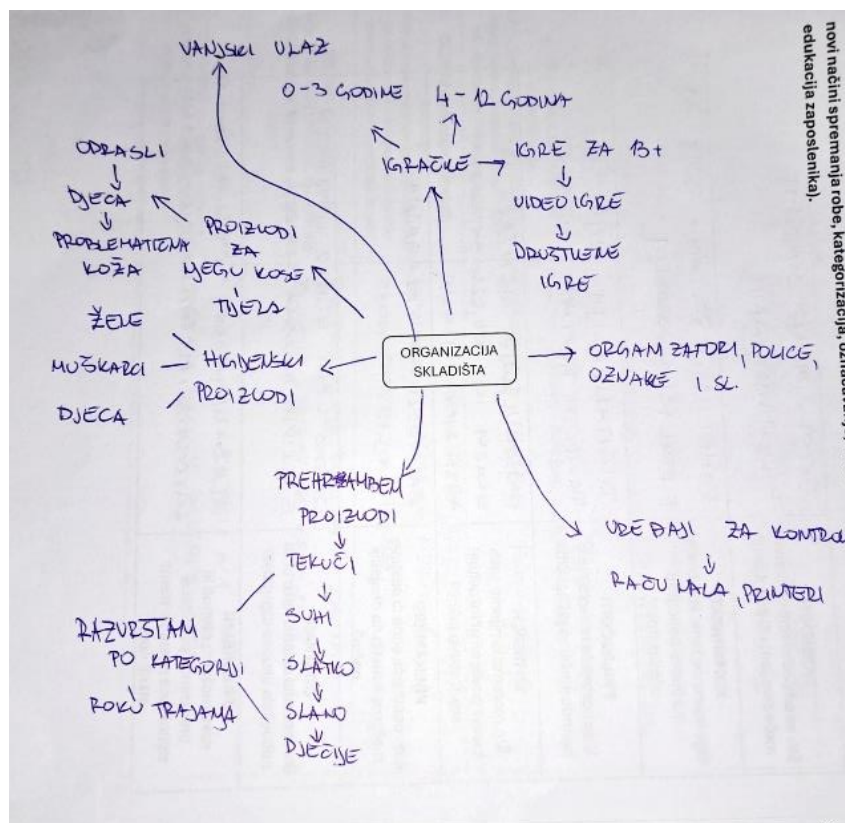 novi načini spremanja robe, kategorizacija,
edukacija zaposlenika).
VANJSKI ULAZ
0-3 GODINE
4-12 GODINA
IGRAČKE
IGRE ZA 13+
VIDEO IGRE
DRUŠTVENE
IGRE
ODRASLI
DJECA
PROBLEMATIČNA
KOŽA
PROIZVODI
ZA
NJEGU KOSE
I
TIJELA
ŽENE
MUŠKARCI
DJECA
HIGIJENSKI
PROIZVODI
ORGANIZACIJA
SKLADIŠTA
ORGANIZATORI, POLICE,
OZNAKE I SL.
PREHRAMBENI
PROIZVODI
TEKUĆI
SUHI
SLATKO
SLANO
DJEČIJE
RAZVRSTANI
PO KATEGORIJI
I
ROKU TRAJANJA
UREĐAJI ZA KONTROL
RAČUNALA, PRINTERI